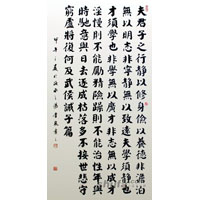 夫君子之行靜以修身儉以養德非澹泊
無以明志非寧靜無以致遠夫學須靜也
才須學也非學無以廣才非志無以成學
淫慢則不能勵精險躁則不能治性年與
時馳意與日去遂成枯落多不接世悲守
窮廬將復何及武侯誡子篇